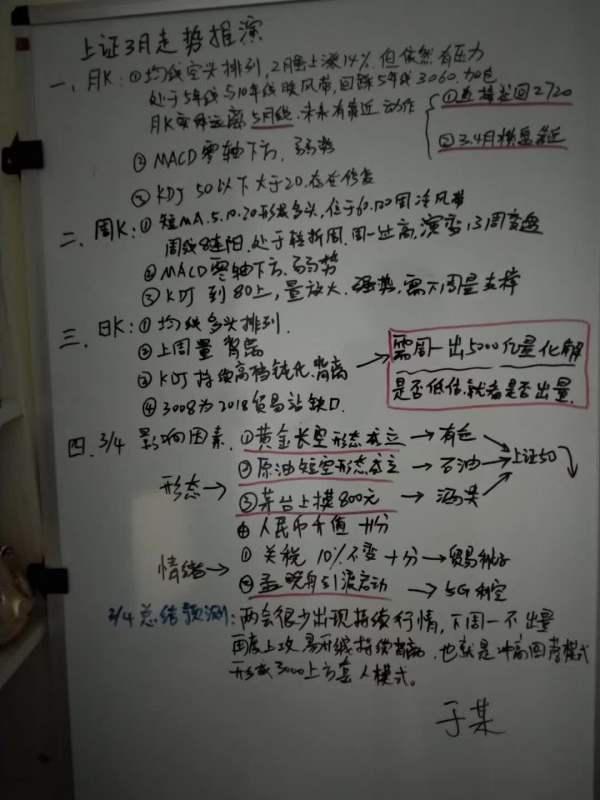 上证3月走势推演
一、月K:①均线空头排列,2月虽上涨14%,但依然有压力
处于5年线与10年线暖风带,回踩5年线3060.加仓
月K实体远离5月线.未来有靠近动作 {①直接跌回2720
②3.4月横盘靠近
②MACD零轴下方,弱势
③KDJ 50以下大于20.存在修复
二、周K:①短MA.5.10.20形成多头,位于60.120周冷风带
周线8连阳.处于转折周.周一过高,演变13周变盘
②MACD零轴下方.弱势
③KDJ到80上,量放大.强势,需下周量支撑
三.日K:①均线多头排列.
②上周量背离
③KDJ持续高档钝化.背离 → 需周一出5000亿量化解
是否低估.就看是否出量.
④3008为2018贸易站缺口.
四.3/4影响因素.①黄金长空形态成立→有色
形态→ ②原油短空形态成立→石油→上证50
③茅台上摸800元→酒类
④人民币升值 +分
情绪→ ①关税10%不变+分→贸易利好
②孟晚舟引渡启动→5G利空
3/4总结预测:两会很少出现持续行情,下周一不出量
再度上攻.易形成持续背离.也就是冲高回落模式
形成3000上方套人模式。
于某